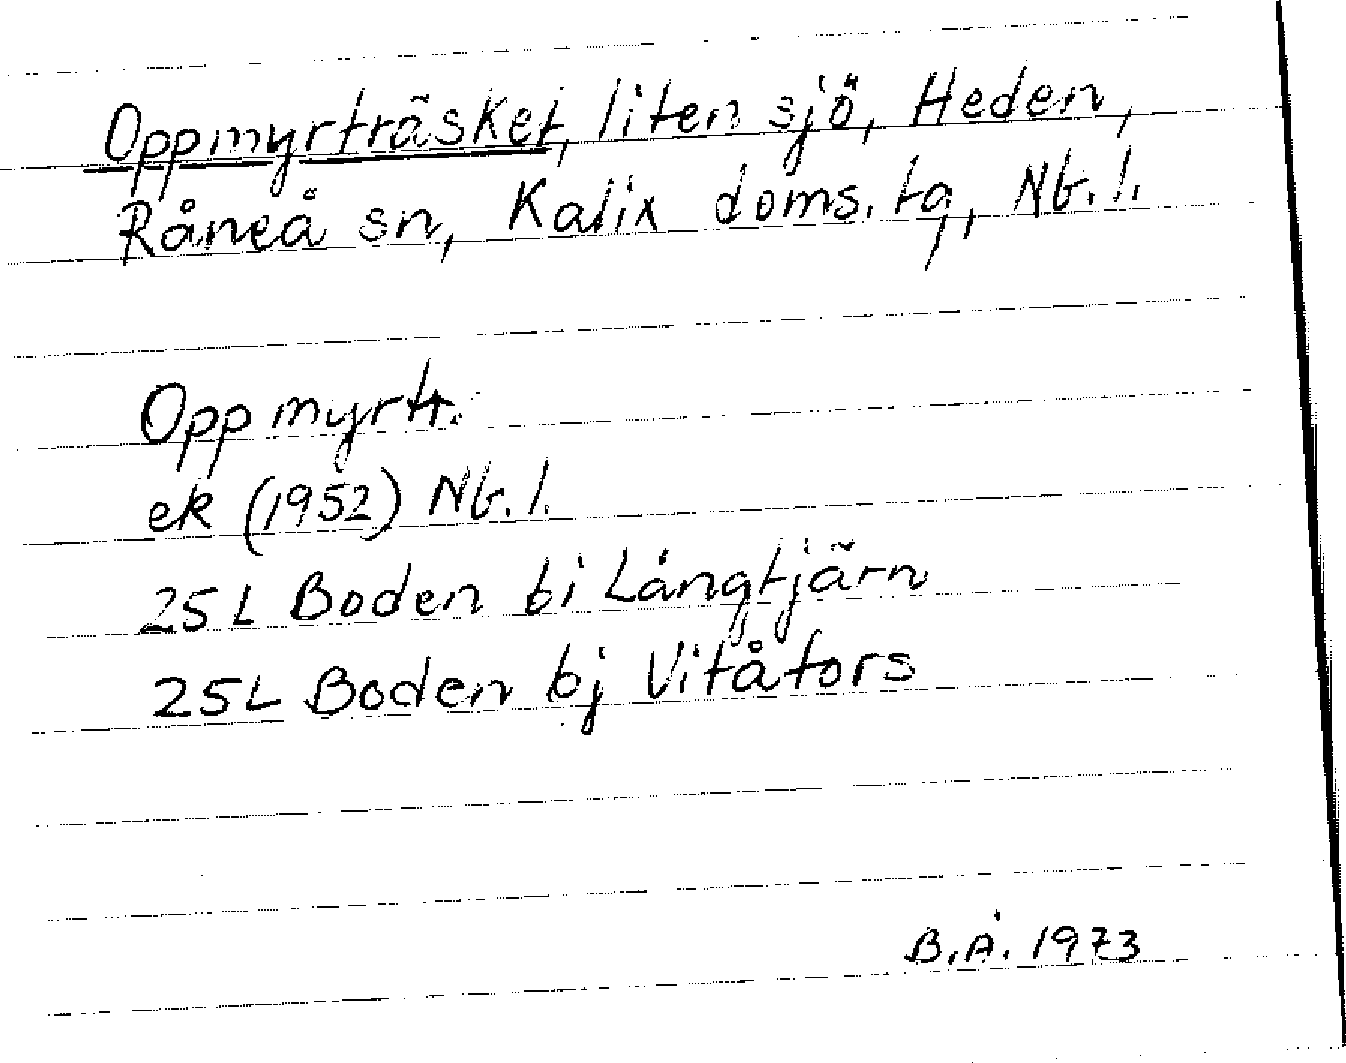 Oppmyrträsket, liten sjö, Heden,
Råneå sn, Kalix doms. tg, Nb. l.
Oppmyrtr.
ek (1952) Nb. l.
25 L Boden bi Långtjärn
25 L Boden bj Vitåfors
B. Å. 1973